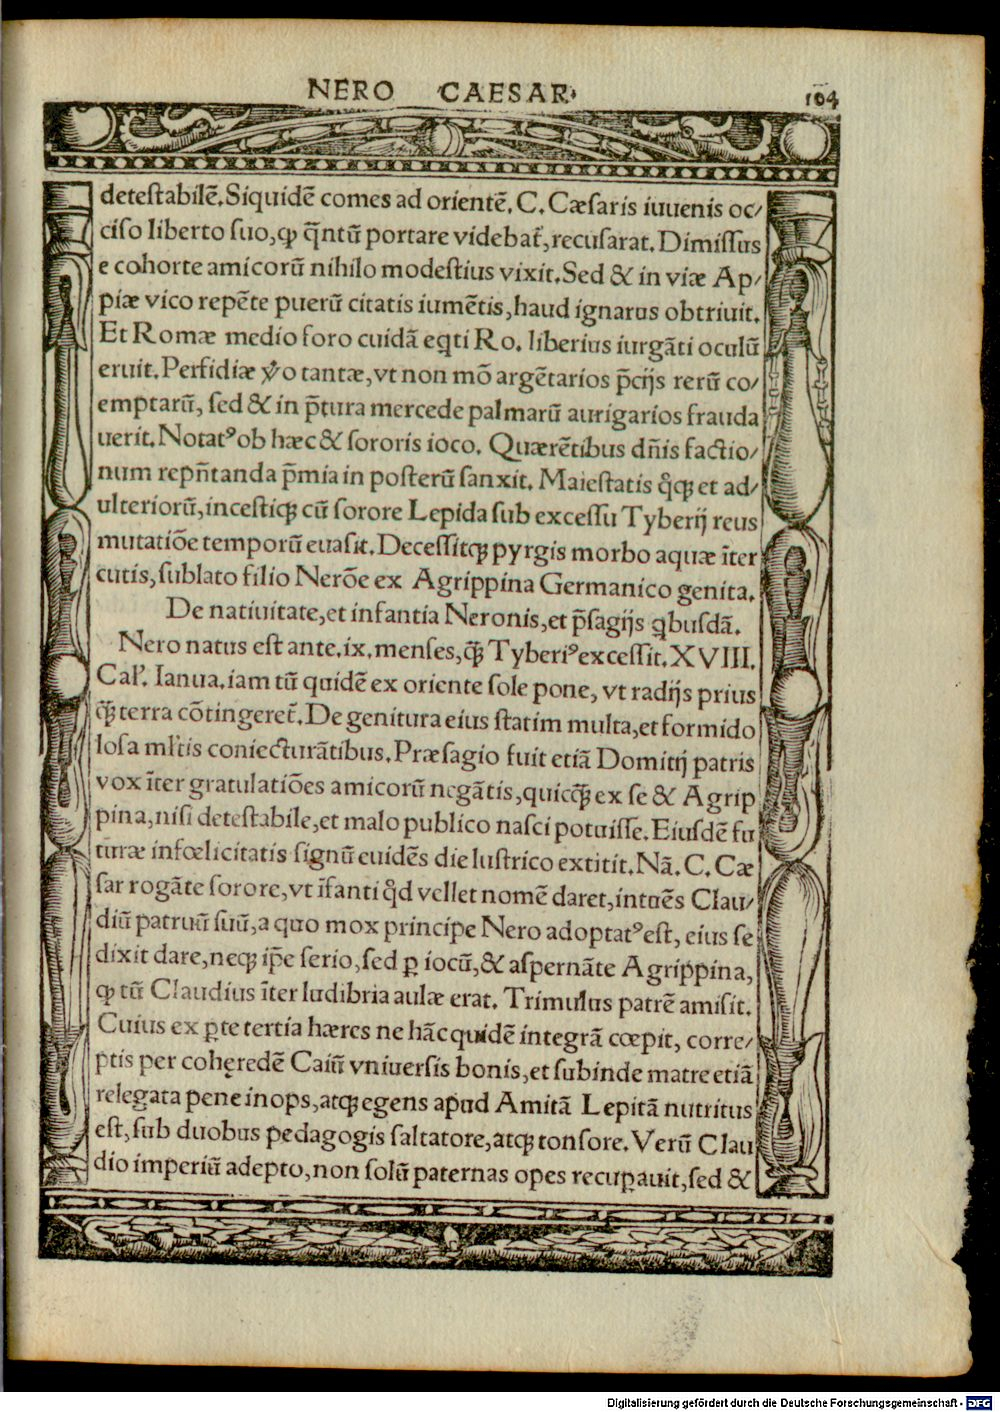 NERO CAESAR·
104
detestabilē. Siquidē comes ad orientē. C. Cæsaris iuuenis oc⸗
ciso liberto suo, ꝙ q̄ntū portare videbat᷑, recusarat. Dimissus
e cohorte amicorū nihilo modestius vixit. Sed & in viæ Ap⸗
piæ vico repēte puerū citatis iumētis, haud ignarus obtriuit.
Et Romæ medio foro cuidā eqti Ro. liberius iurgāti oculū
eruit. Perfidiæ v̊o tantæ, vt non mō argētarios p̄cijs rerū co⸗
emptarū, sed & in p̄tura mercede palmarū aurigarios frauda
uerit. Notatꝰ ob hæc & sororis ioco. Quærētibus dn̄is factio⸗
num repn̄tanda p̄mia in posterū sanxit. Maiestatis qͦqꝫ et ad⸗
ulteriorū, incestiqꝫ cū sorore Lepida sub excessu Tyberij reus
mutatiōe temporū euasit. Decessitqꝫ pyrgis morbo aquæ īter
cutis, sublato filio Nerōe ex Agrippina Germanico genita.
De natiuitate, et infantia Neronis, et p̄sagijs qbusdā.
Nero natus est ante .ix. menses, q̄ꝫ Tyberiꝰ excessit. XVIII.
Calʳ. Ianua. iam tū quidē ex oriente sole pone, vt radijs prius
q̄ꝫ terra cōtingeret᷑. De genitura eius statim multa, et formido
losa ml̓tis coniecturātibus. Præsagio fuit etiā Domitij patris
vox īter gratulatiōes amicorū negātis, quicq̄ꝫ ex se & Agrip
pina, nisi detestabile, et malo publico nasci potuisse. Eiusdē fu
turæ infœlicitatis signū euidēs die lustrico extitit. Nā. C. Cæ
sar rogāte sorore, vt īfanti qͥd vellet nomē daret, intuēs Clau⸗
diū patruū suū, a quo mox principe Nero adoptatꝰ est, eius se
dixit dare, neqꝫ ip̄e serio, sed ꝑ iocū, & aspernāte Agrippina,
ꝙ tū Claudius īter ludibria aulæ erat. Trimulus patrē amisit.
Cuius ex ꝑte tertia hæres ne hāc quidē integrā cœpit, corre⸗
ptis per coheredē Caiū vniuersis bonis, et subinde matre etiā
relegata pene inops, atqꝫ egens apud Amitā Lepitā nutritus
est, sub duobus pedagogis saltatore, atqꝫ tonsore. Verū Clau
dio imperiū adepto, non solū paternas opes recuꝑauit, sed &
Digitalisierung gefördert durch die Deutsche Forschungsgemeinschaft - DFG